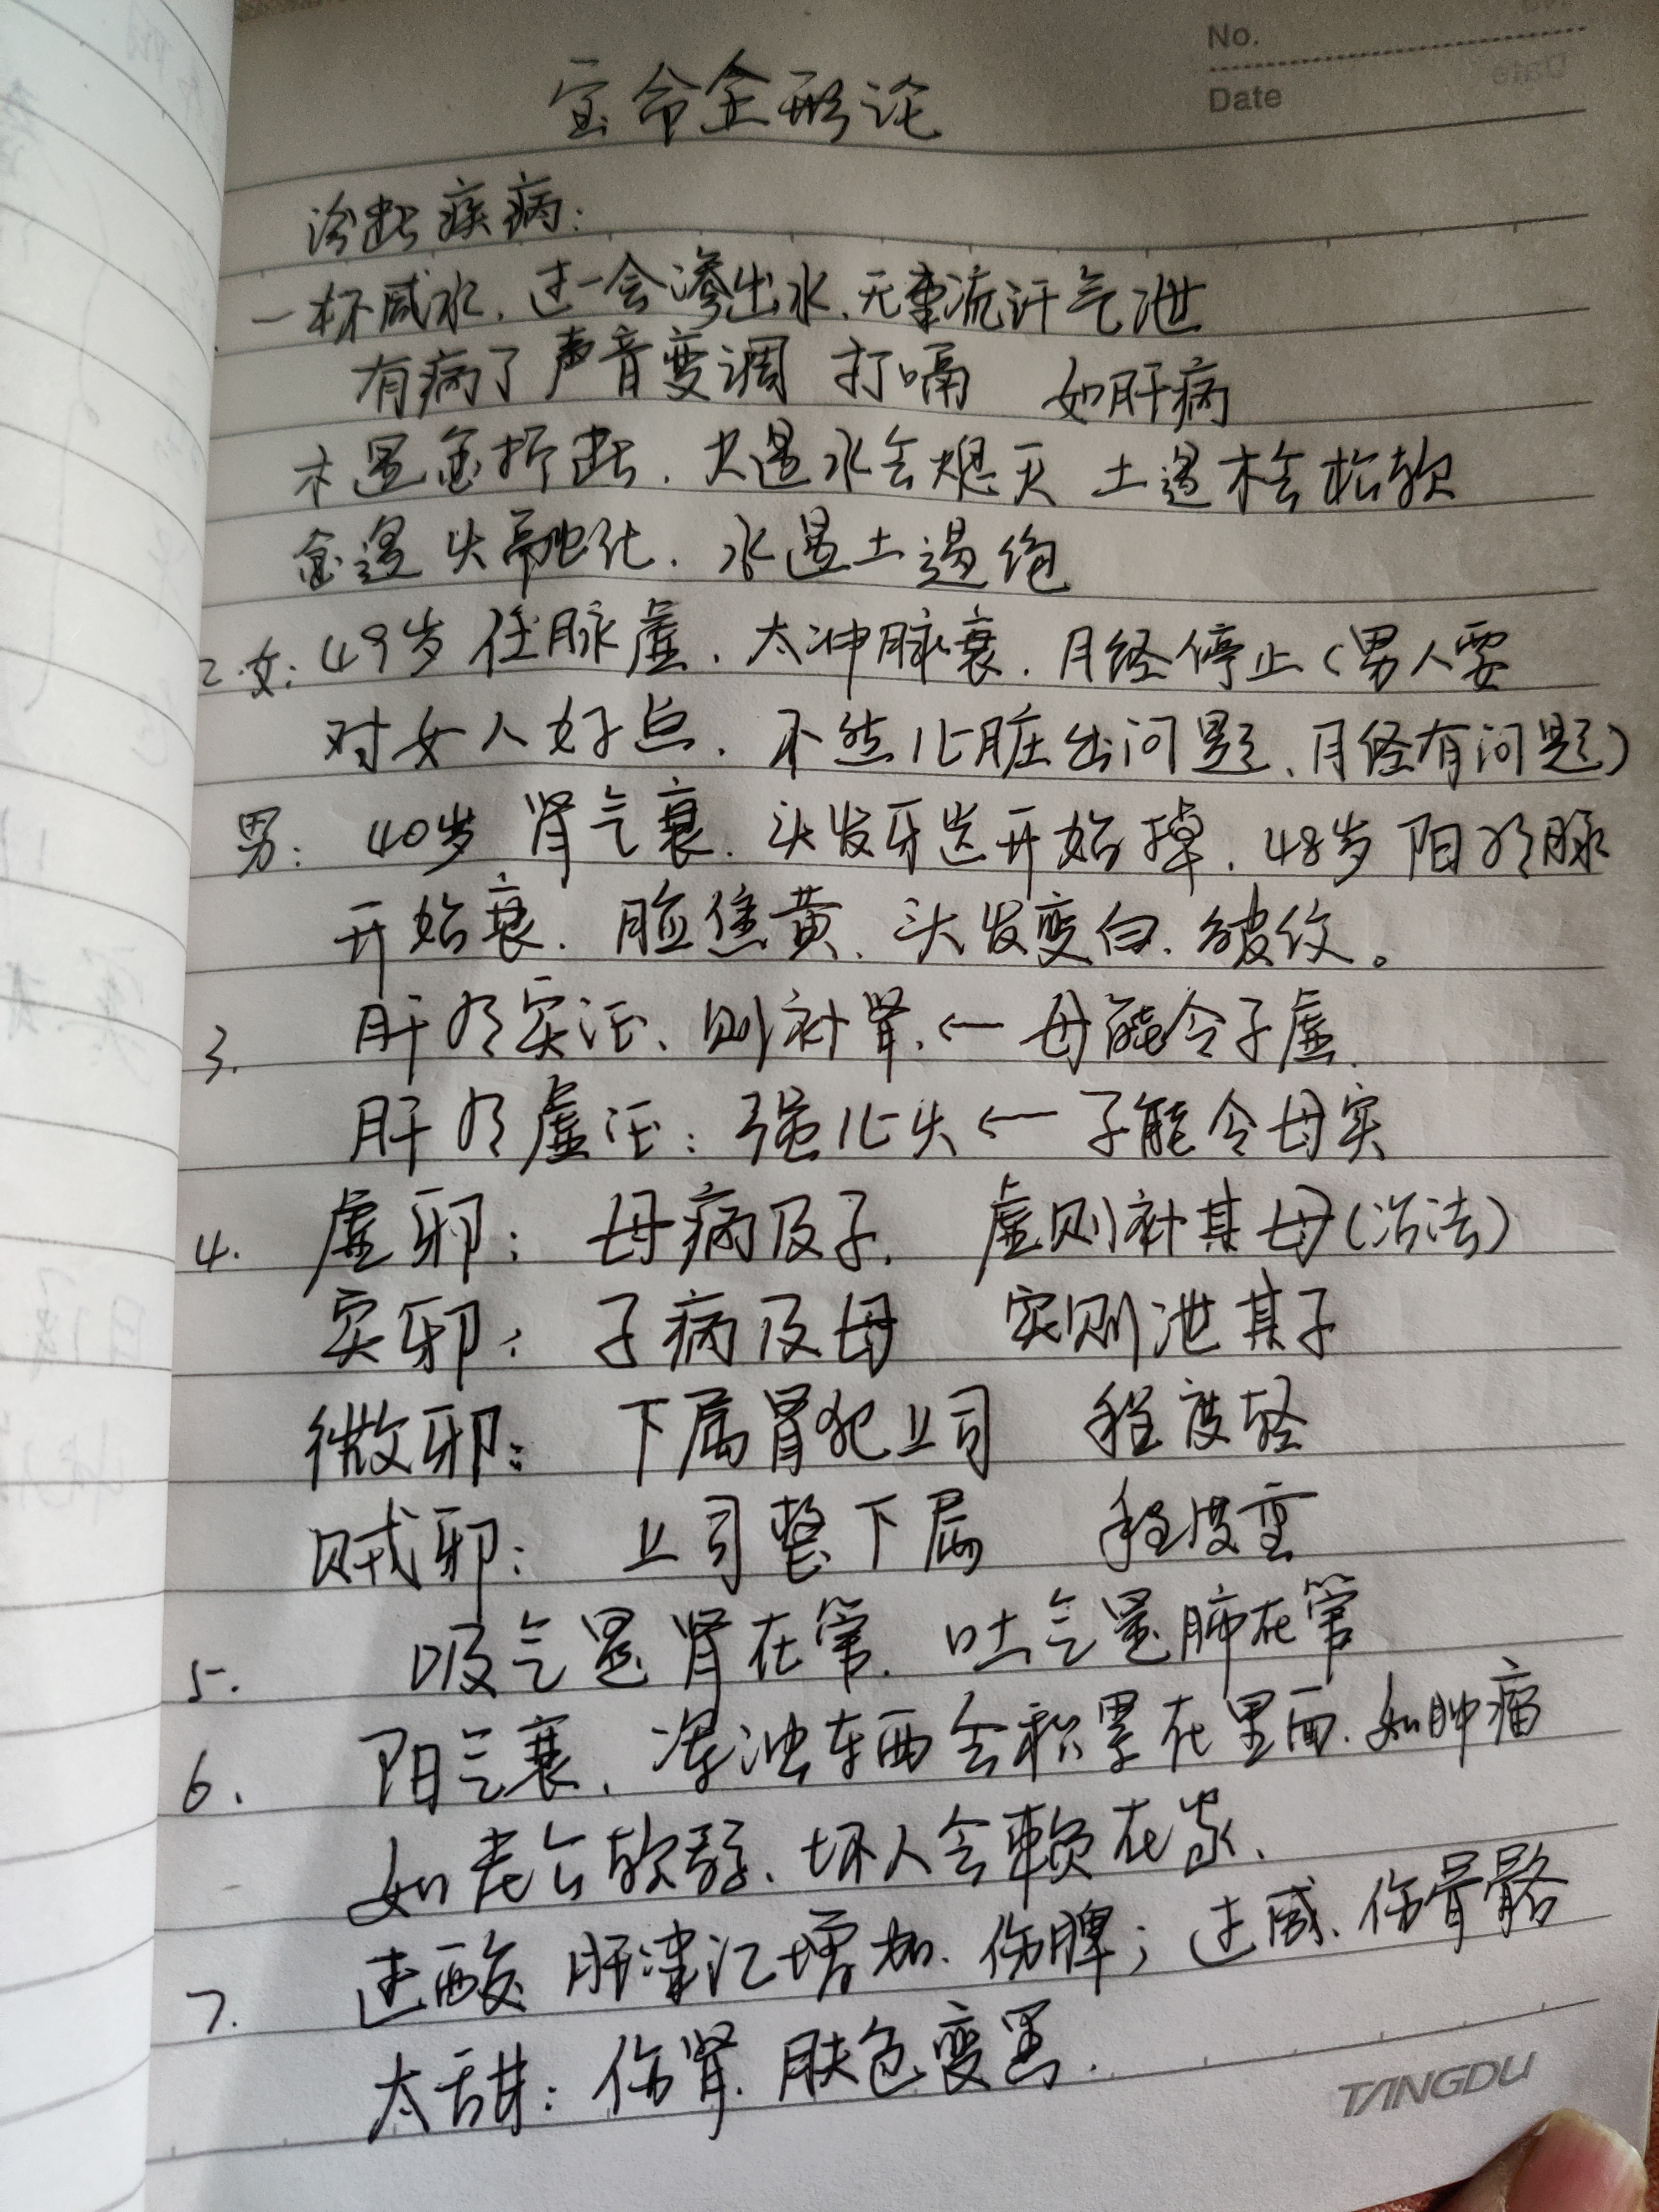 No.
Date
宝命全形论
诊断疾病:
一杯咸水,过一会渗出水,无事流汗气泄
有病了声音变调 打嗝 如肝病
木遇金折断,火遇水会熄灭 土遇木会松软
金遇火融化,水遇土遏绝
2.女:49岁任脉虚,太冲脉衰,月经停止(男人要
对女人好点,不然心脏出问题、月经有问题)
男:40岁肾气衰,头发牙齿开始掉,48岁阳明脉
开始衰,脸焦黄、头发变白、皱纹。
3. 肝有实证、则补肾.← 母能令子虚.
肝有虚证:强心火←子能令母实
4. 虚邪:母病及子. 虚则补其母(治法)
实邪:子病及母 实则泄其子
微邪:下属冒犯上司 程度轻
贼邪:上司整下属 程度重
5. 吸气是肾在管.吐气是肺在管
6. 阳气衰,浊东西会积累在里面.如肿瘤
如老公软弱、坏人会赖在家.
7. 过酸肝津汇增加.伤脾;过咸、伤骨骼
太甜:伤肾.肤色变黑.
TANGDU